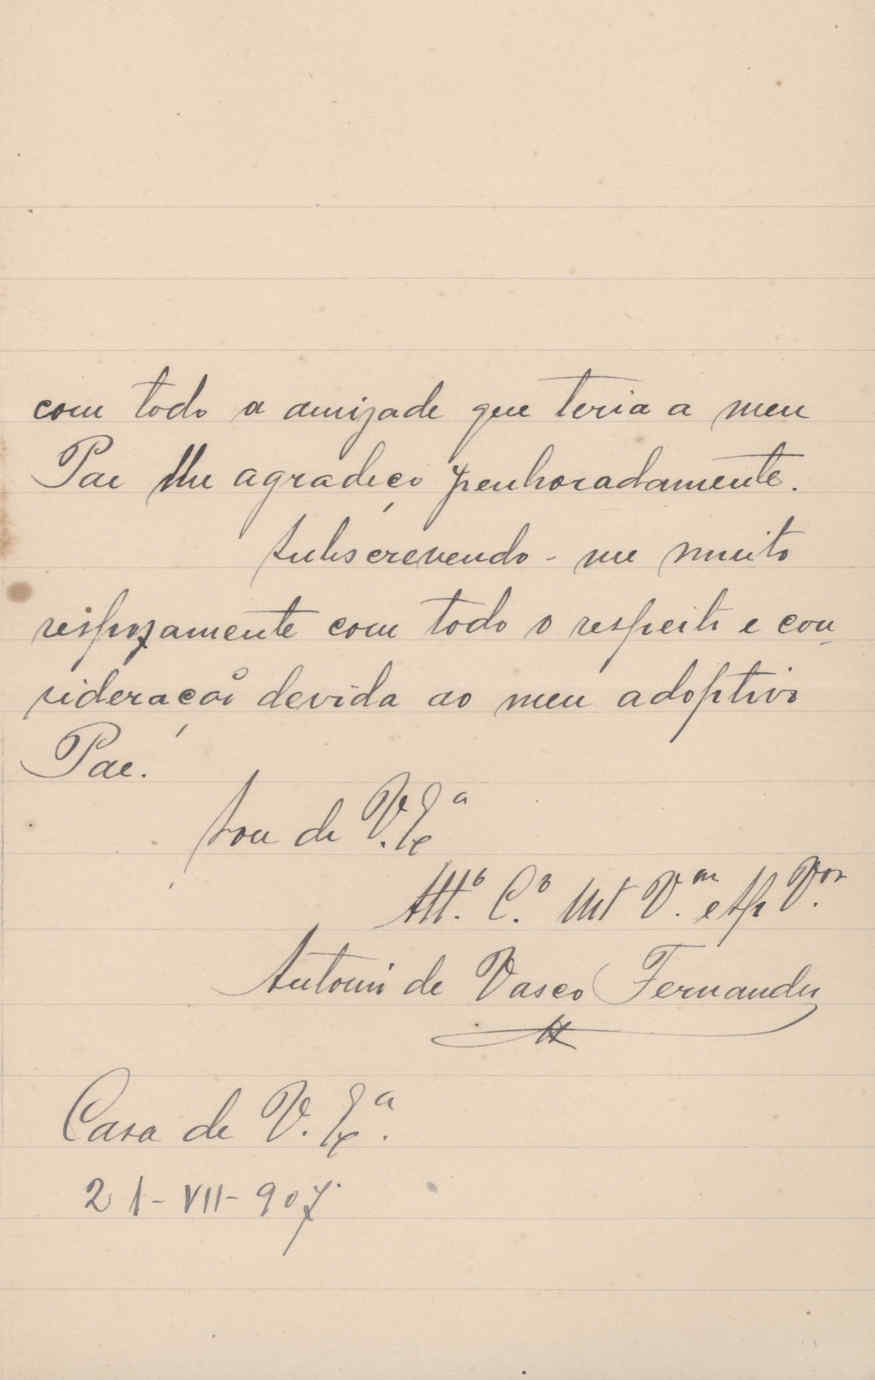 com todo a amizade que teria a meu
Pae lhe agradeço penhoradamente.
Subscrevendo-me muito
respozamente com todo o respeito e con-
sideração devida ao meu adoptivo
Pae.
Sou de V. Exª
Attº C.º Mt V.ᵒʳ
Antonio de Vasco Fernandes
Casa de V. Exª.
21-VII-907